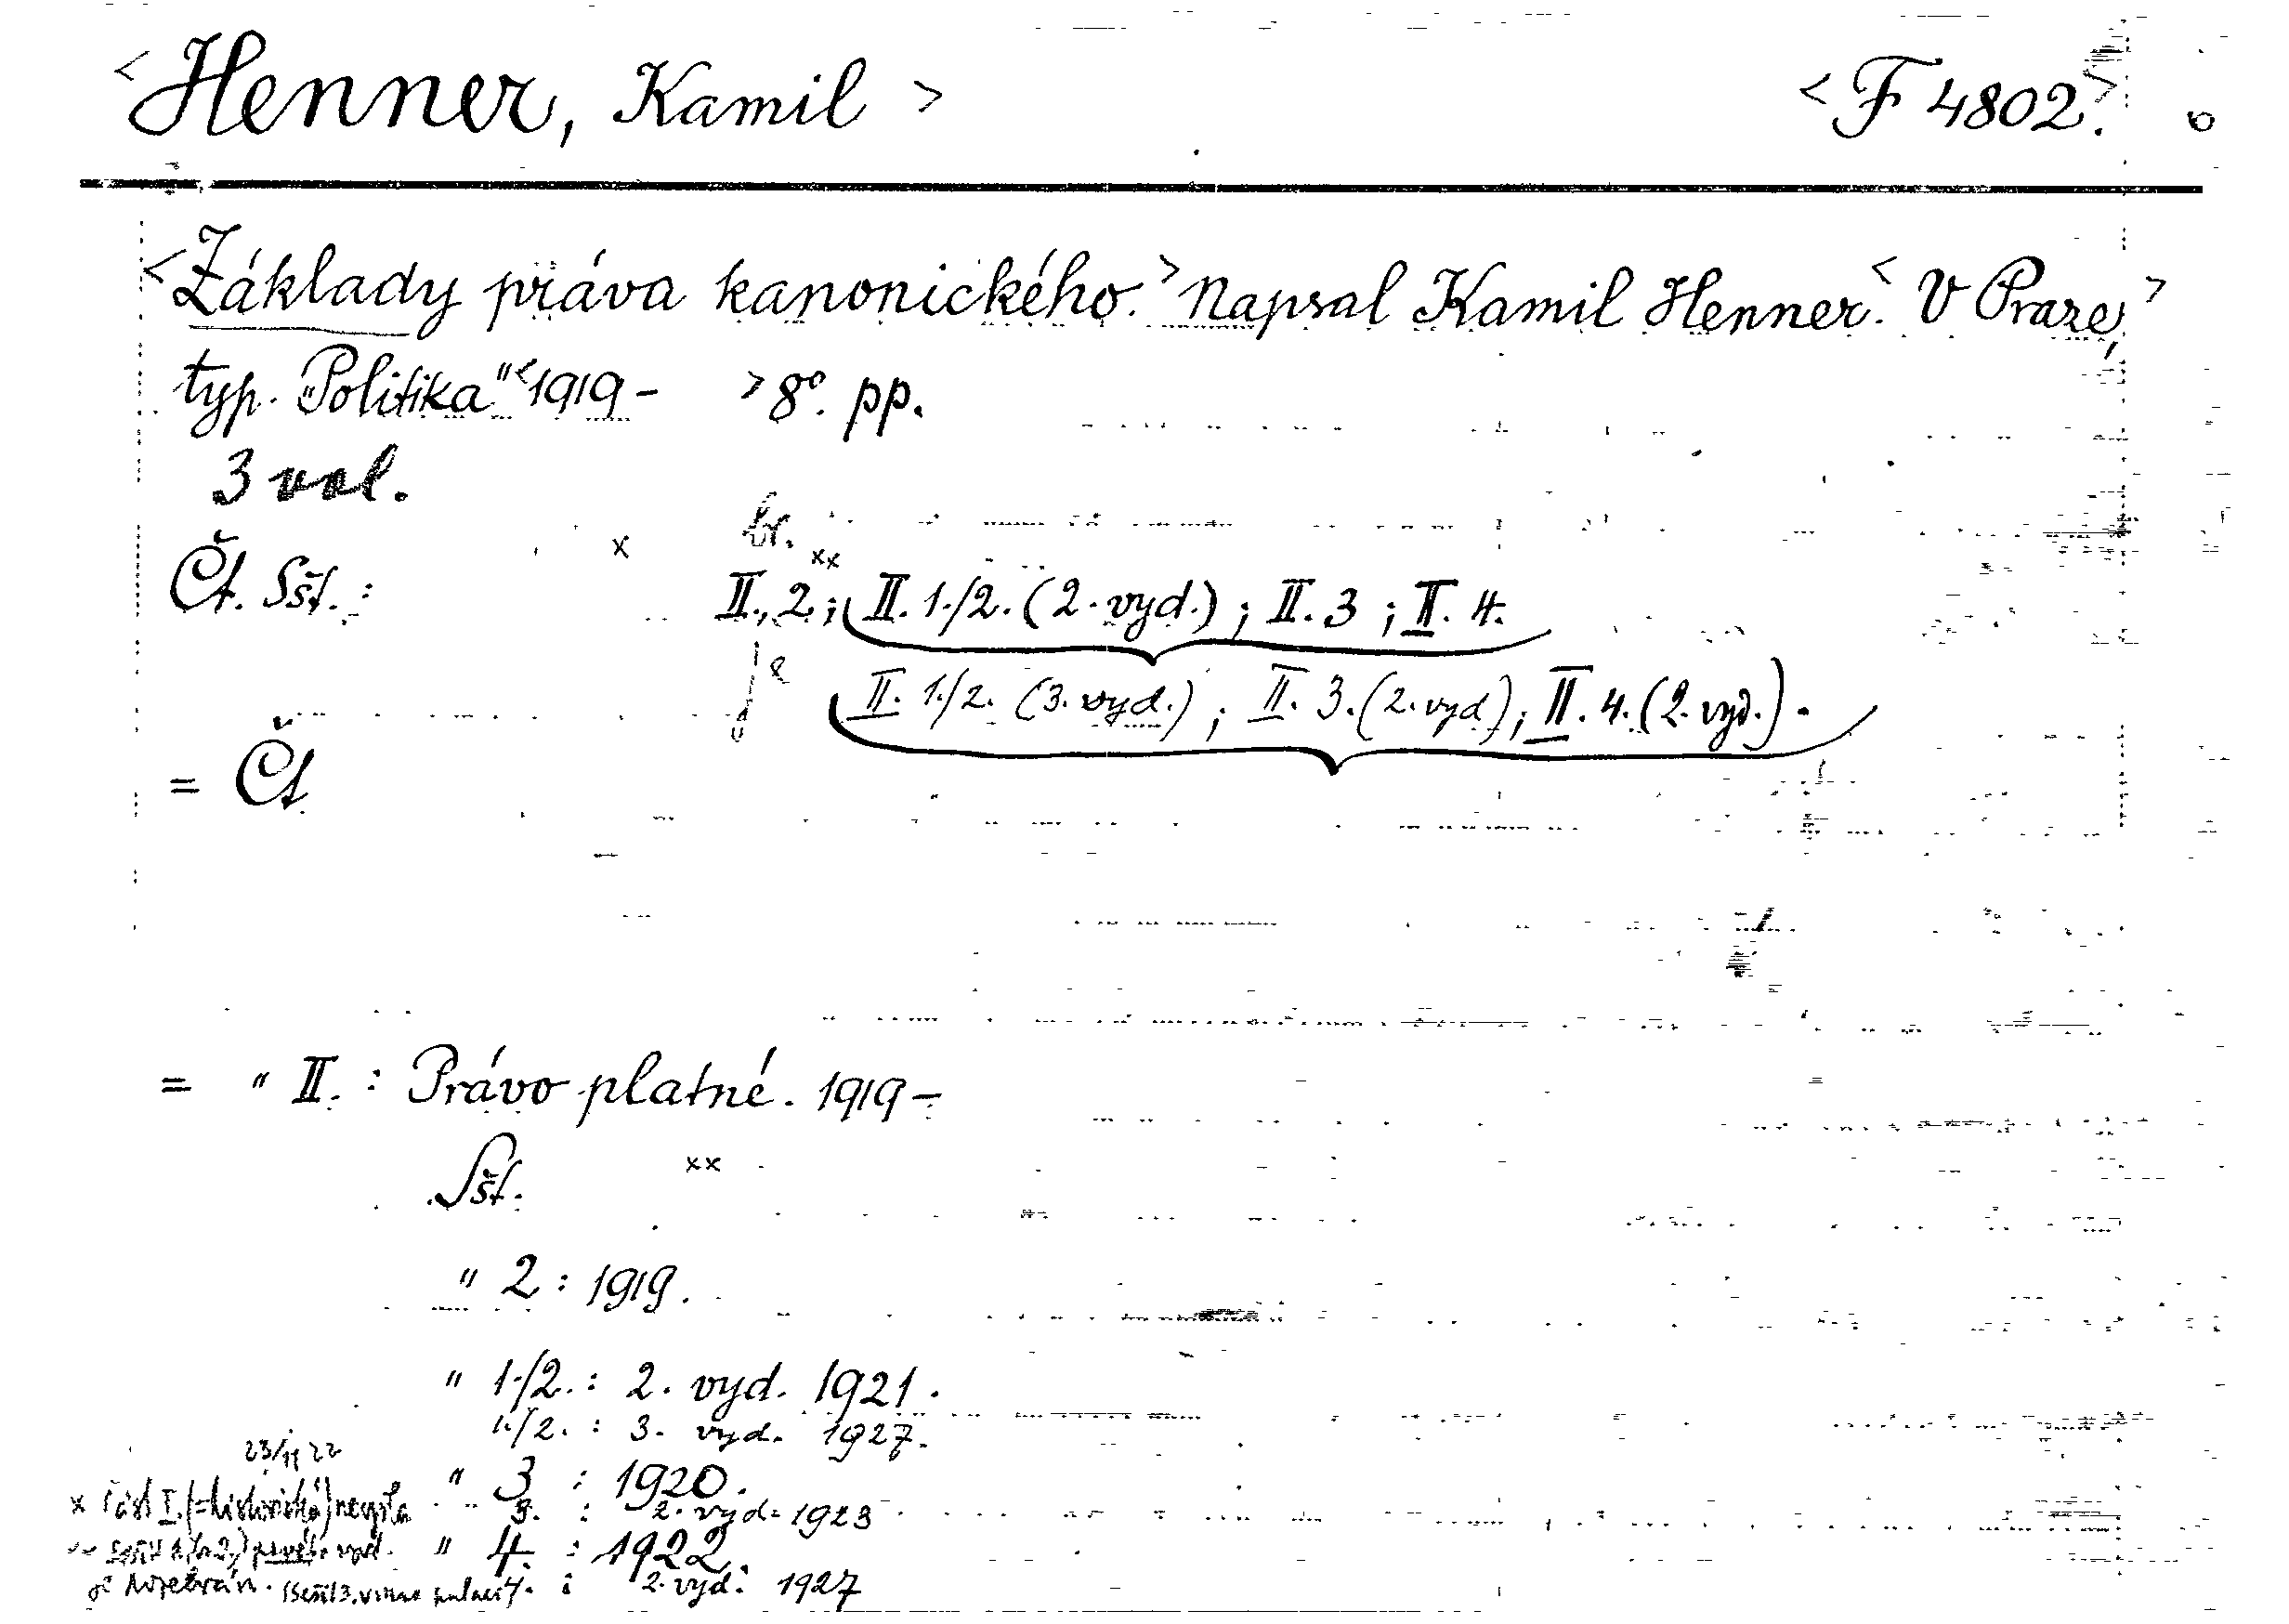 <Henner, Kamil> <F 4802.>
<Základy práva kanonického.> Napsal Kamil Henner.< V Praze,>
typ. „Politika" <1919 - > 8°. pp.
3 vol.
x br.
Čt. Sšt.: II., 2; xx II. 1./2. (2. vyd.); II. 3; II. 4.
II. 1./2. (3. vyd.); II. 3. (2. vyd); II. 4. (2. vyd.).
= Čt.
= " II. : Právo platné. 1919 -
Sšt. xx
" 2 : 1919.
" 1./2. : 2. vyd. 1921.
1./2. : 3. vyd. 1927.
23/11 22
" 3 : 1920.
x část I. (= historická) nevyšla
3. : 2. vyd. 1923
" 4. : 1922.
4. : 2. vyd. 1927